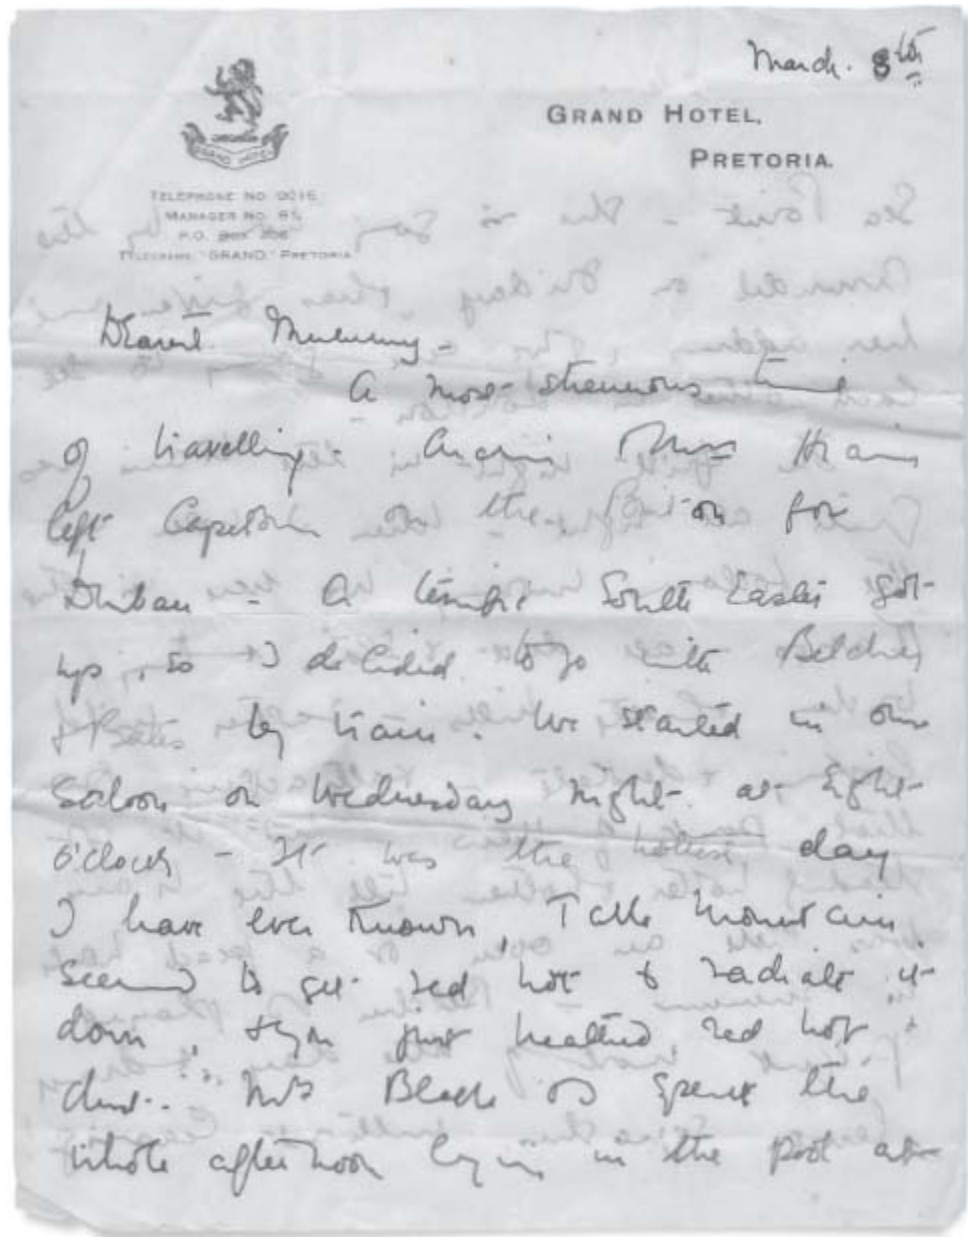 March. 8th
GRAND HOTEL
GRAND HOTEL,
PRETORIA.
TELEPHONE NO. 0016
MANAGER NO. 85
P.O. BOX
TELEGRAMS "GRAND," PRETORIA
Dearest Mummy -
A most strenuous time
of travelling -
left Capetown on the for
Durban - A terrific South Easter got
up, so I decided to go with Belcher
by train. We started in our
Saloon on Wednesday night at Eight
o'clock - It was the hottest day
I have ever known, Table Mountain
seemed to get red hot & radiate it
down, & you just breathed red hot
dust. Mrs Bleeke & I spent the
whole afternoon lying in the pool at